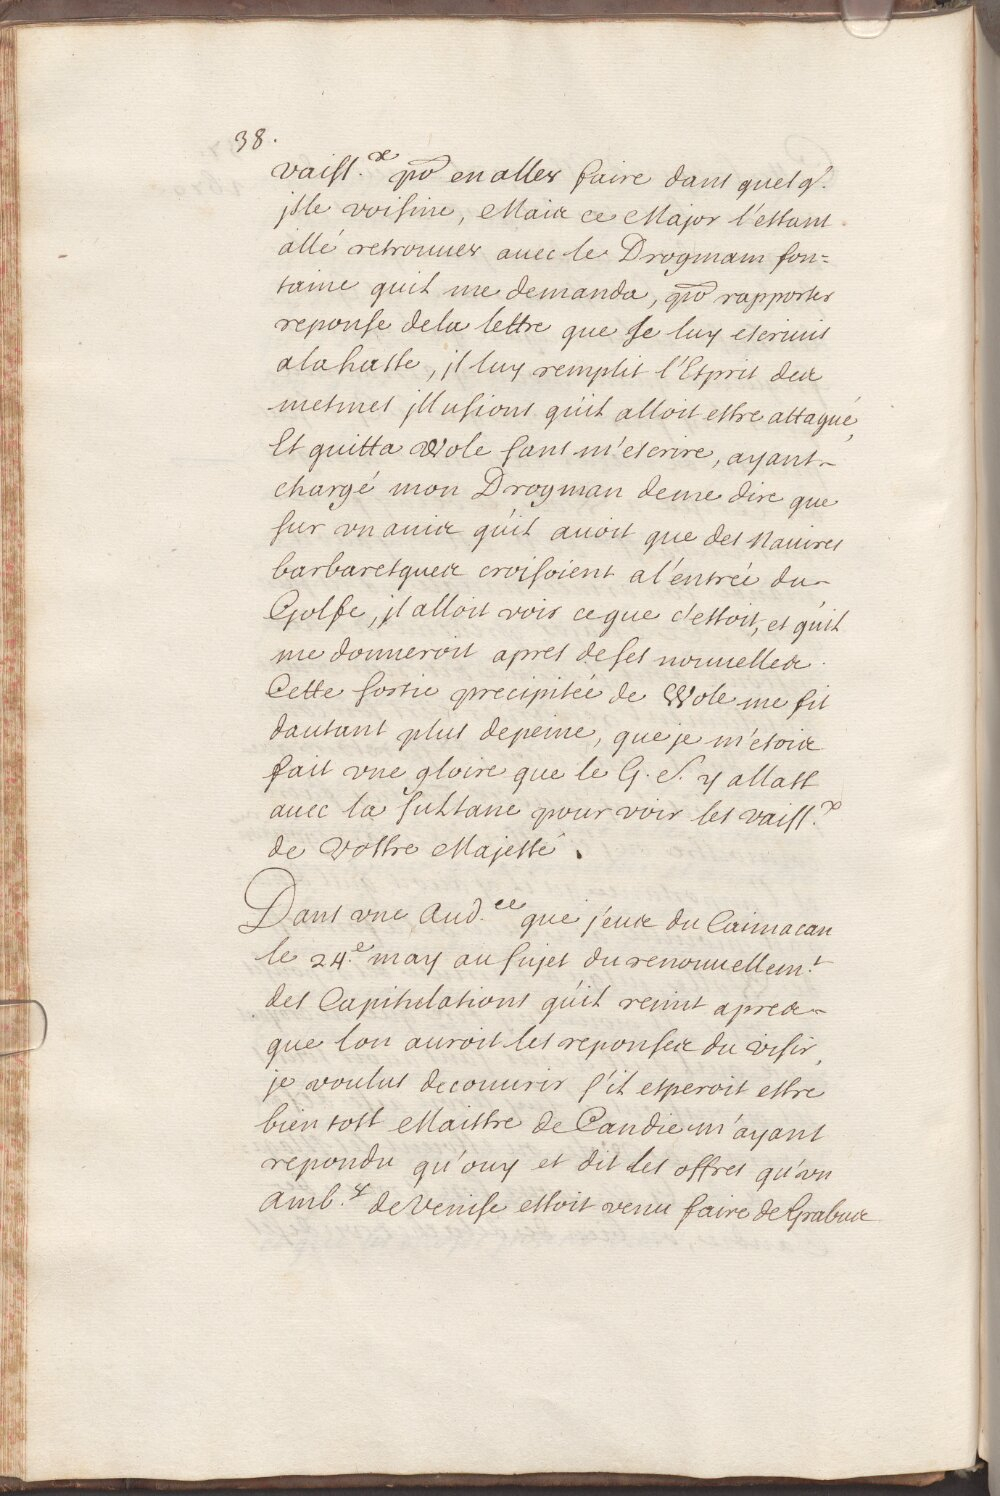 38.
vaiss.x po en aller faire dans quelq.
jsle voisine, Mais ce Major l'estant
allé retrouuer auec le Drogmam fon=
taine quil me demanda, po rapporter
reponse dela lettre que Je luy escriuis
alahaste, jl luy remplit l'Esprit des
mesmes jllusions quil alloit estre attaqué,
Et quitta Wole sans m'escrire, ayant
chargé mon Drogman deme dire que
sur vn auis quil auoit que des Nauires
barbaresques croisoient a l'entrée du
Golfe, jl alloit voir ceque c'estoit, et quil
me donneroit apres deses nouuelles.
Cette sortie precipitée de Wole me fit
dautant plus depeine, que je m'estois
fait vne gloire que le G. S. y allast
auec la sultane pour voir les vaiss.x
de Vostre Majesté.
Dans vne Aud.ce que j'eus du Caimacan
le 24.e may au sujet du renouuellem.t
des Capitulations quil remit apres
que lon auroit les reponses du visir,
je voulus decouurir s'il esperoit estre
bien tost Maistre de Candie m'ayant
repondu qu'ouy et dit les offres qu'vn
Amb.r de Venise estoit venu faire de Grabus